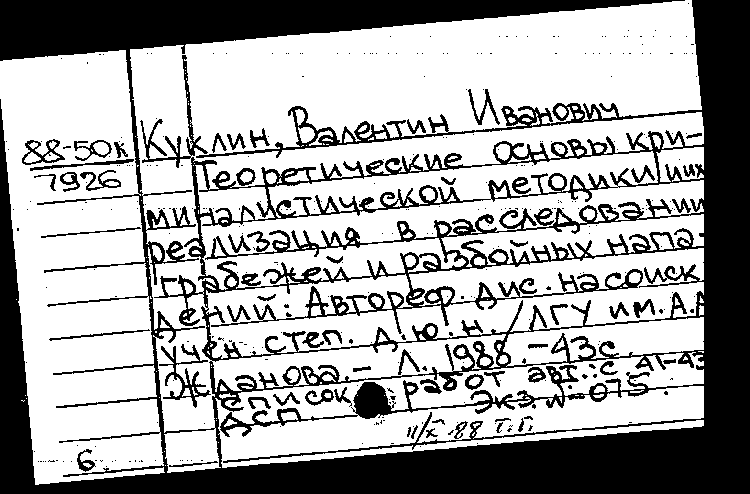 88-50к
7926
Куклин, Валентин Иванович
Теоретические основы кри-
миналистической методики и их
реализация в расследовании
грабежей и разбойных напа-
дений: Автореф. дис. на соиск.
учен. степ. д.ю.н. / ЛГУ им. А.А.
Жданова. - Л., 1988. - 43с.
Список работ авт.: с. 41-43
ДСП. Экз. N-075.
11/X 88 Т.Г.
6